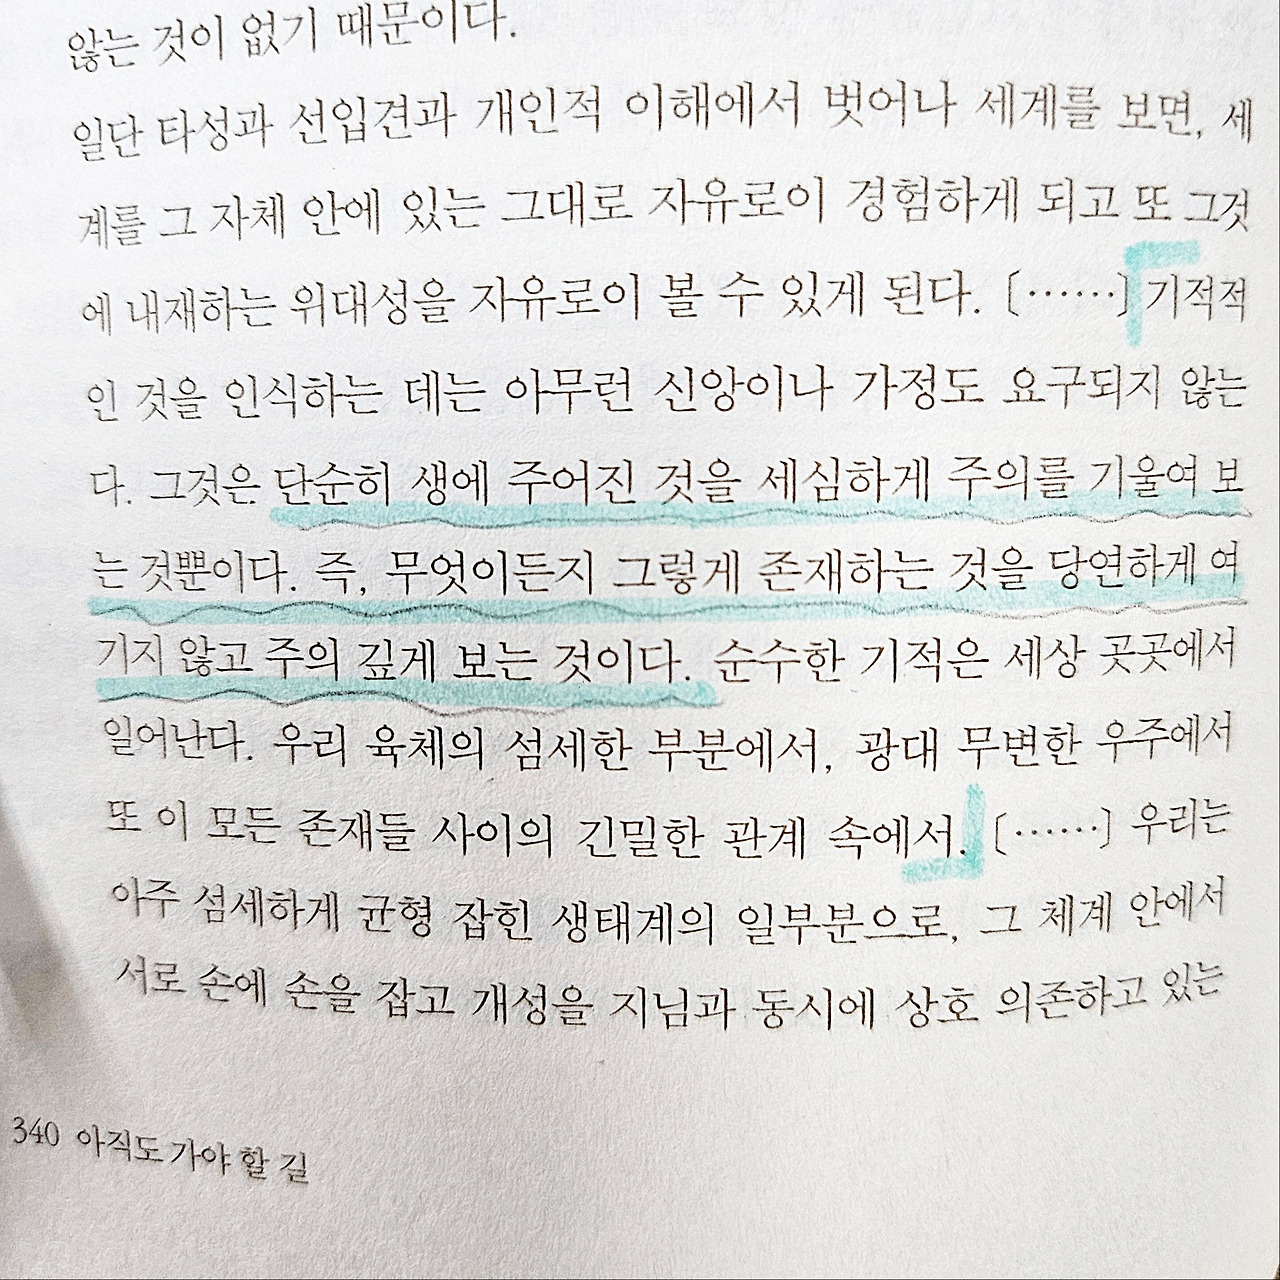 않는 것이 없기 때문이다.
일단 타성과 선입견과 개인적 이해에서 벗어나 세계를 보면, 세
계를 그 자체 안에 있는 그대로 자유로이 경험하게 되고 또 그것
에 내재하는 위대성을 자유로이 볼 수 있게 된다. 〔……〕 기적적
인 것을 인식하는 데는 아무런 신앙이나 가정도 요구되지 않는
다. 그것은 단순히 생에 주어진 것을 세심하게 주의를 기울여 보
는 것뿐이다. 즉, 무엇이든지 그렇게 존재하는 것을 당연하게 여
기지 않고 주의 깊게 보는 것이다. 순수한 기적은 세상 곳곳에서
일어난다. 우리 육체의 섬세한 부분에서, 광대 무변한 우주에서
또 이 모든 존재들 사이의 긴밀한 관계 속에서. 〔……〕 우리는
아주 섬세하게 균형 잡힌 생태계의 일부분으로, 그 체계 안에서
서로 손에 손을 잡고 개성을 지님과 동시에 상호 의존하고 있는
340 아직도 가야 할 길